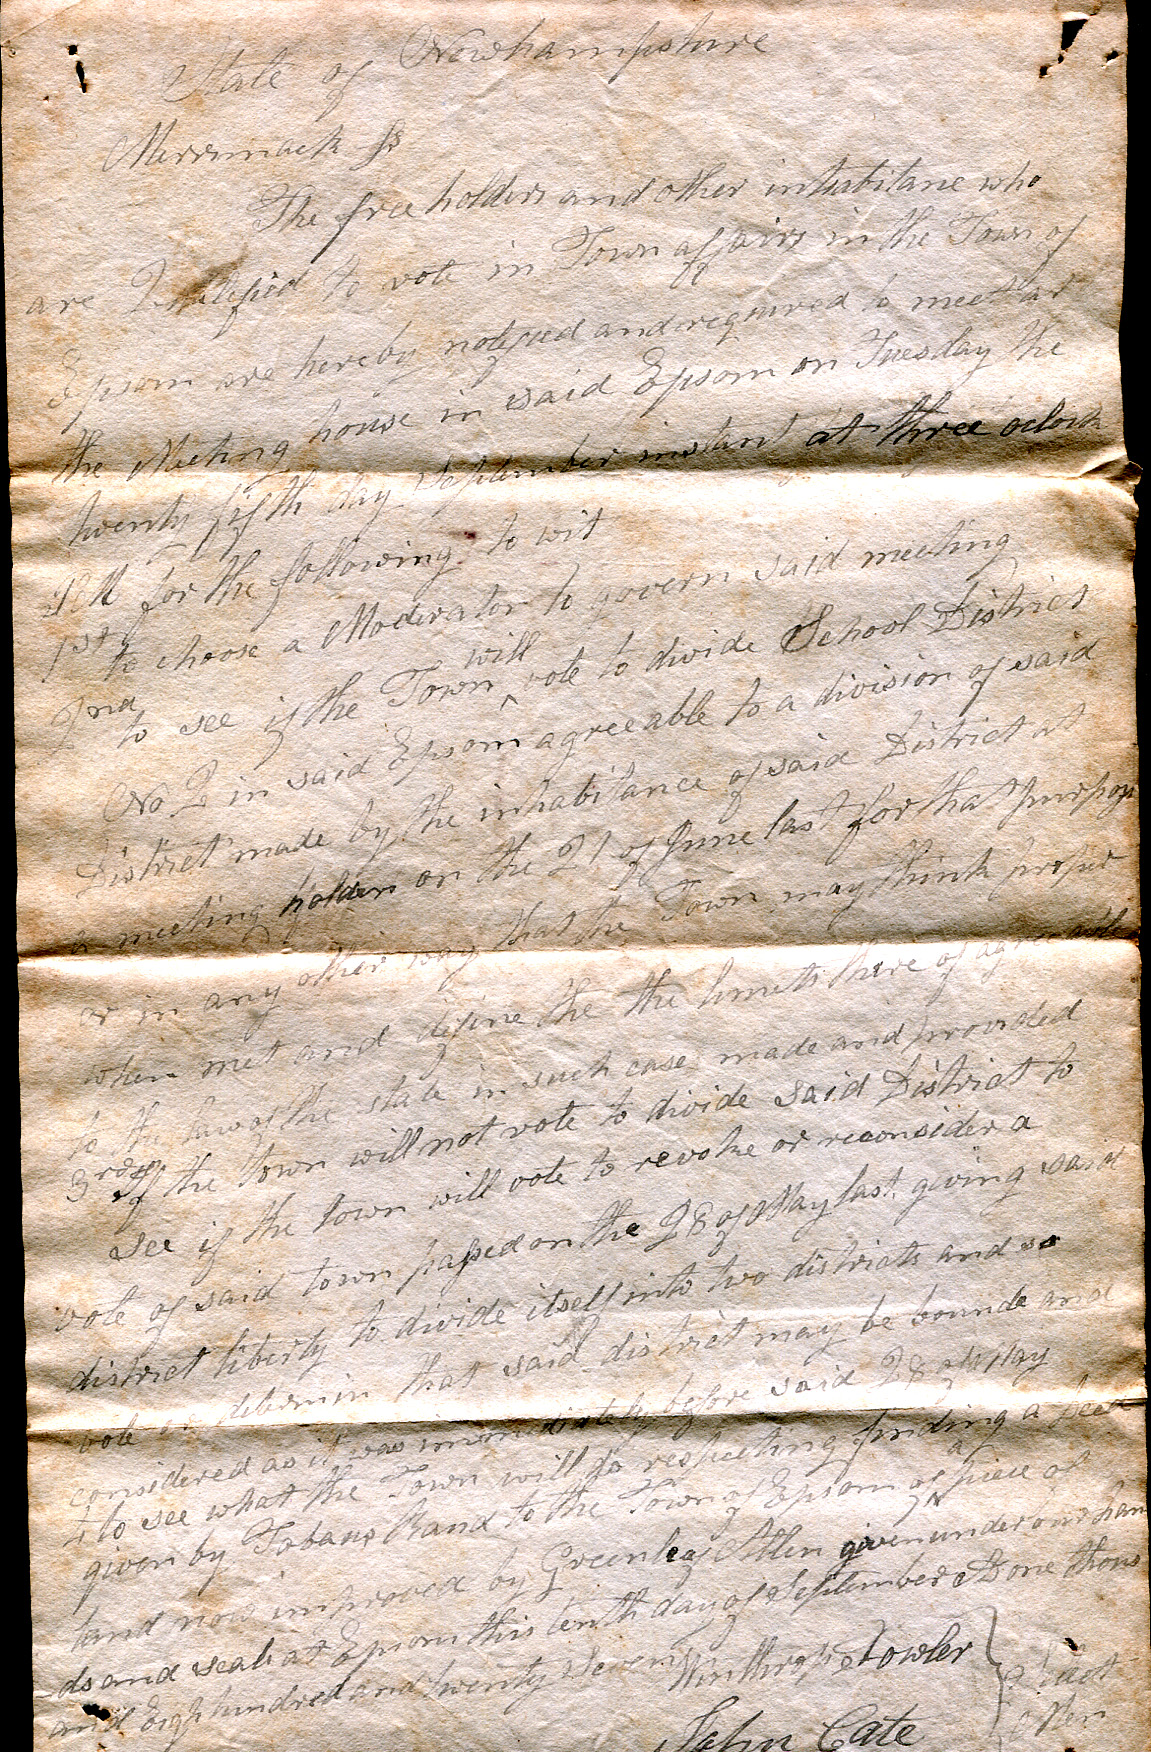 State of Newhampshire
Merrimack ss
The free holders and other inhabitane who
are Qualified to vote in Town affairs in the Town of
Epsom are hereby notified and required to meet at
the Meeting house in said Epsom on Tuesday the
twenty fifth day September instant at three oclock
PM for the following to wit
1st to choose a Moderator to govern said meeting
2nd to see if the Town will vote to divide School District
No 2 in said Epsom agreeable to a division of said
District made by the inhabitance of said District at
a meeting holden on the 21 of June last for that purpos
or in any other way that the Town may think proper
when met and define the the limits there of agreeable
to the law of the state in such case made and provided
3rd If the town will not vote to divide said District to
see if the town will vote to revoke or reconsider a
vote of said town passed on the 28 of May last giving said
district liberty to divide itself into two districts and so
vote or determin that said district may be bounde and
considered as it was immediately before said 28 of May
4 to see what the Town will do respecting finding a Deed
given by Rand to the Town of Epsom of a piece of
land now improved by Greenleaf Allen given under our han
ds and seals at Epsom this tenth day of September AD one thous
and Eigh hundred and twenty seven
Winthrop Fowler
John Cate
Select
Men